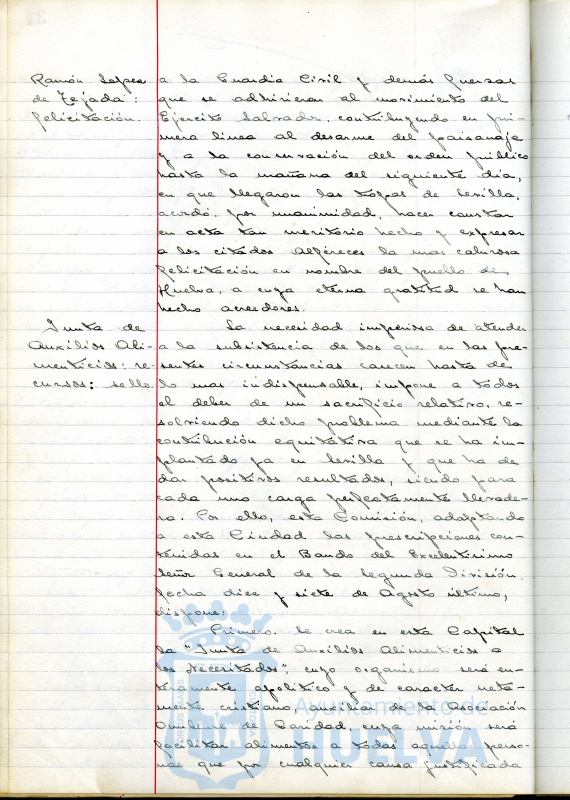 Ramón Lopez
de Tejada:
felicitación.
a la Guardia Civil y demás fuerzas
que se adhirieron al movimiento del
Ejército Salvador, contribuyendo en pri-
mera linea al desarme del paisanaje
y a la conservación del orden público
hasta la mañana del siguiente dia,
en que llegaron las tropas de Sevilla,
acordó, por unanimidad, hacer constar
en acta tan meritorio hecho y expresar
a los citados Alféreces la mas calurosa
felicitación en nombre del pueblo de
Huelva, a cuya eterna gratitud se han
hecho acreedores.
Junta de
Auxilios Ali-
menticios: re-
cursos: sello.
La necesidad imperiosa de atender
a la subsistencia de los que en las pre-
sentes circunstancias carecen hasta de
lo mas indispensable, impone a todos
el deber de un sacrificio relativo, re-
solviendo dicho problema mediante la
contribución equitativa que se ha im-
plantado ya en Sevilla y que ha de
dar positivos resultados, siendo para
cada uno carga perfectamente llevade-
ra. Por ello, esta Comisión, adaptando
a esta Ciudad las prescripciones con-
tenidas en el Bando del Excelentísimo
Señor General de la Segunda División,
fecha diez y siete de Agosto último,
dispone:
Primero. Se crea en esta Capital
la "Junta de Auxilios Alimenticios a
los Necesitados", cuyo organismo será en-
teramente apolítico y de caracter neta-
mente cristiano, auxiliar de la Asociación
Onubense de Caridad, cuya misión será
facilitar alimentos a todas aquellas perso-
nas que por cualquier causa justificada
Ayuntamiento de
HUELVA